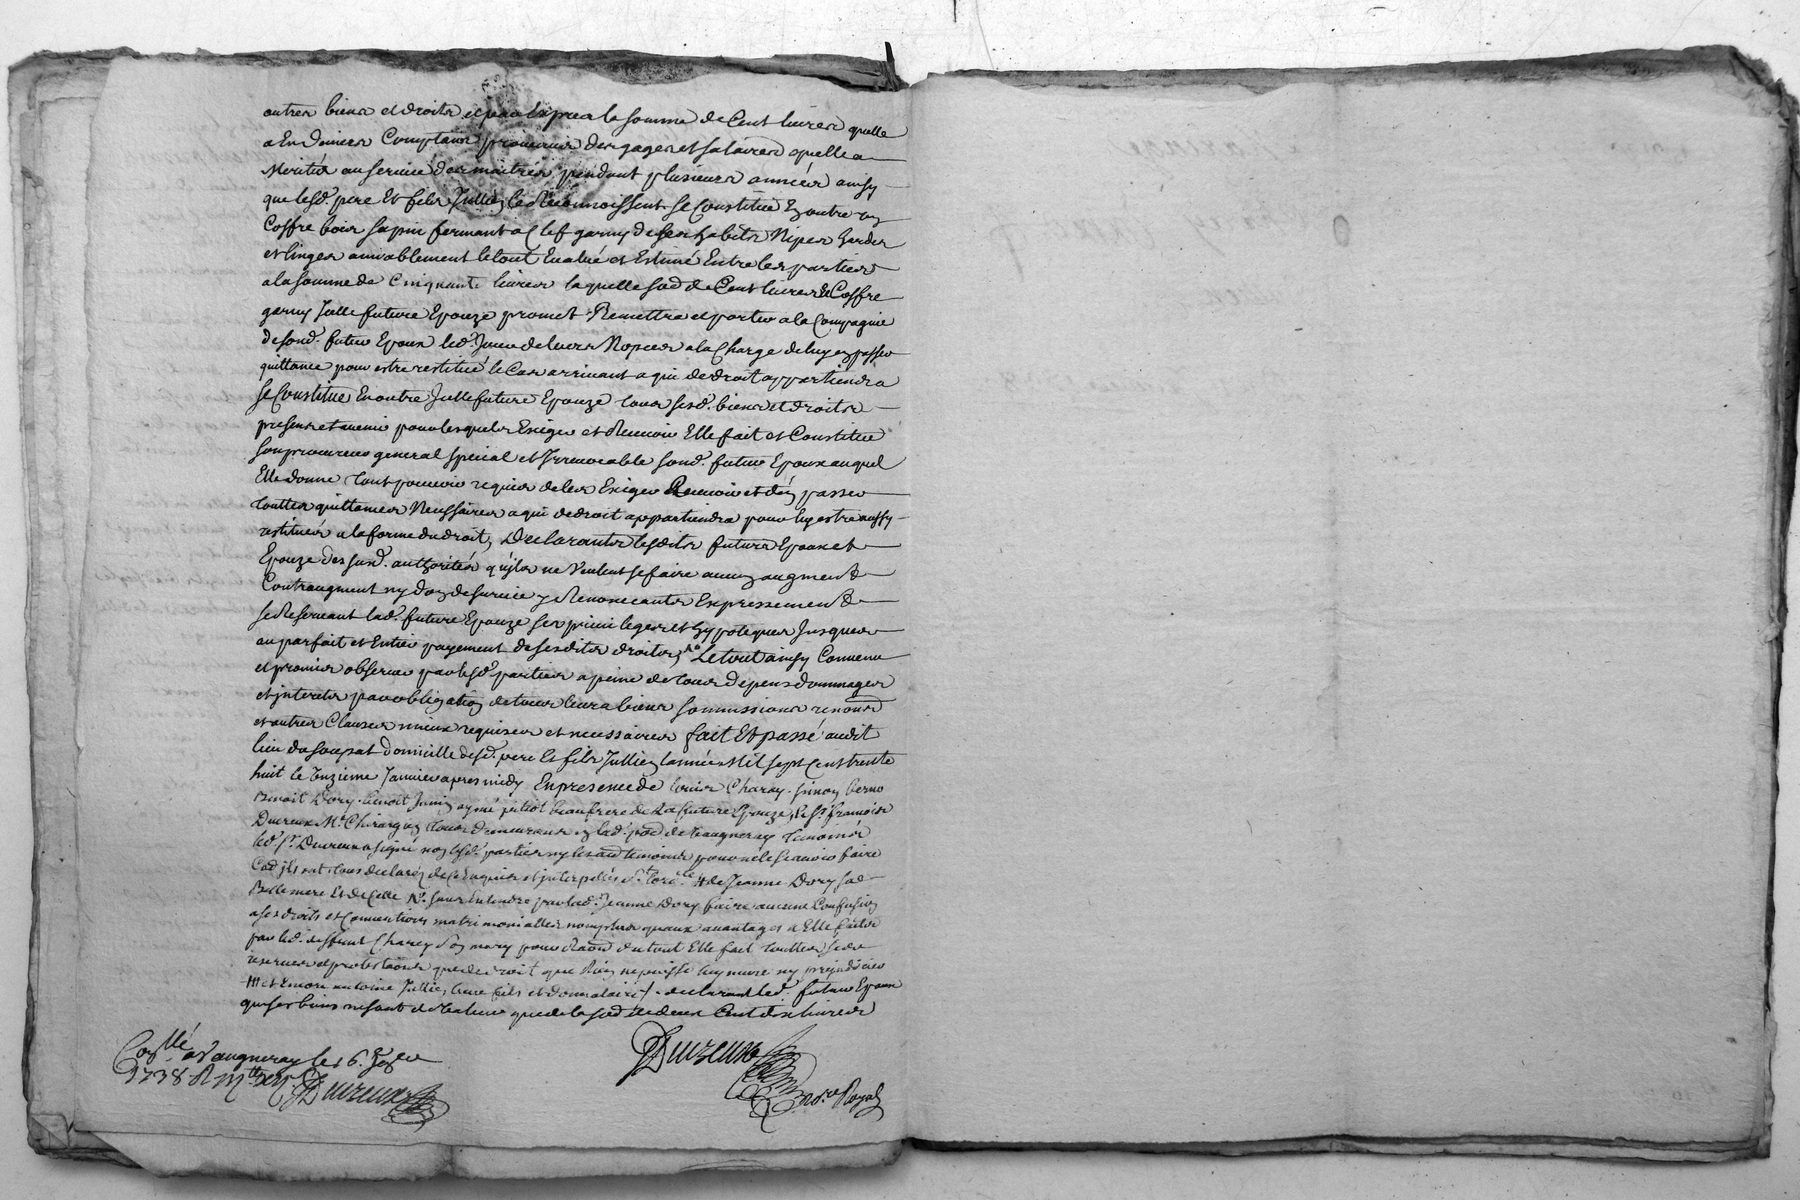 autres biens et droits et par expres la somme de Cent livres quelle
a En deniers Comptans provenus des gages et salaires quelle a
Merités au service des maitres pendant plusieurs années ainsy
que lesd. pere Et fils Jullien le Reconnoissent se Constitue En outre un
Coffre bois sapin fermant a Clef garny de ses habits Nipes hardes
et linges amiablement le tout Evalué et Estimé Entre les parties
a la somme de Cinquante livres laquelle so.e de Cent livres & Coffre
garny Jcelle future Epouze promet Remettre et porter a la Compagnie
de sond. futur Epoux le Jour de leurs Nopces a la Charge de luy en passer
quittance pour estre restitué le Cas arrivant a qui de droit appartiendra
Se Constitue En outre Jcelle future Epouze tous sesd. biens et droits
presents et avenir pour lesquels Exiger et Recevoir Elle fait et Constitue
son procureur general special et Irrevocable sond. futur Epoux auquel
Elle donne tout pouvoir requis de les Exiger Recevoir et d'en passer
touttes quittances Necessaires a qui de droit appartiendra pour luy estre aussy
restitués a la forme du droit, Declarants lesdits futurs Epoux et
Epouze des susd. authorités qu'ils ne Veulent se faire aucun augment
Contraugment ny don de survie y Renonceants Expressement
se Reservant lad. future Epouze ses privileges et hypoteques Jusques
au parfait et Entier payement de sesdits droits, Le tout ainsy Convenu
et promis observer par lesd. parties a peine de tous depens dommages
et jnterets par obligation de tous leurs biens soumissions renond
et autres Clauses mieux requises et necessaires fait Et passé audit
lieu du soupat domicille desd. pere Et fils Jullien l'année Mil sept Cent trente
huit le onzieme Janvier apres midy En presence de
Benoit Dory, benoit aymé beaufrere de La future Epouze, le Sr. françois
Ducreux Me. Chirurgien tous demeurans en lad. pse de Vaugneray temoins
led. Sr. Ducreux a signé non lesd. parties ny les au. temoins pour ne le scavoir faire
Cad jls ont tous declarés de ce Enquis et jnterpellés de Jeanne Dory sa
Belle mere Et de Celle sans Entendre par lad. Jeanne Dory faire aucune Confusion
a ses droits et Conventions matrimonialles non plus quaux avantages a Elle faits
par led. deffunt Charey son mary pour Raon du tout Elle fait touttes ses
reserves et protestaons que de droit que Rien ne puisse luy nuire ny prejudicier
et Encore antoine Jullien leur fils et donnataire declarant led. futur Epoux
que ses biens ne sont de Valeur que de la so.e de deux Cent dix livres
Ducreux
Nore. Royal
Conllé a Vaugneray le 16. Janer
1738
Ducreux